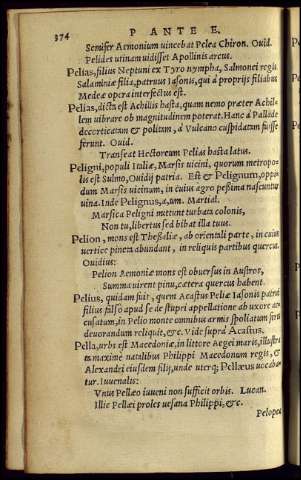 374
P ANTE E.
Semifer Aemonium vincebat Pelea Chiron. Ouid.
Pelides vtinam vidisset Apollinis arcus.
Pelias, filius Neptuni ex Tyro nympha, Salmonei regis
Salaminæ filia, patruus Iasonis, qui à proprijs filiabus
Medeæ opera interfectus est.
Pelias, dicta est Achillis hasta, quam nemo præter Achil-
lem vibrare ob magnitudinem poterat. Hanc à Pallade
decorticatam & politam, à Vulcano cuspidatam fuisse
ferunt. Ouid.
Transeat Hectoreum Pelias hasta latus.
Peligni, populi Italiæ, Marsis vicini, quorum metropo-
lis est Sulmo, Ouidij patria. Est & Pelignum, oppi-
dum Marsis vicinum, in cuius agro pessima nascuntur
vina. Inde Pelignus, a, um. Martial.
Marsica Peligni mittunt turbata coloni,
Non tu, libertus sed bibat illa tuus.
Pelion, mons est Thessaliæ, ab orientali parte, in cuius
vertice pineta abundant, in reliquis partibus quercus.
Ouidius:
Pelion Aemoniæ mons est obuersus in Austros,
Summa virent pinu, cætera quercus habent.
Pelius, quidam fuit, quem Acastus Peliæ Iasonis patrui
filius falso apud se de stupri appellatione ab vxore ac-
cusatum, in Pelio monte omnibus armis spoliatum feris
deuorandum reliquit, &c. Vide suprà Acastus.
Pella, vrbs est Macedoniæ, in littore Aegei maris, illustris
maximè natalibus Philippi Macedonum regis, &
Alexandri eiusdem filij, vnde uterq; Pellæus vocaba-
tur. Iuuenalis:
Vnus Pellæo iuueni non sufficit orbis. Lucan.
Illic Pellæi proles vesana Philippi, &c.
Pelopea